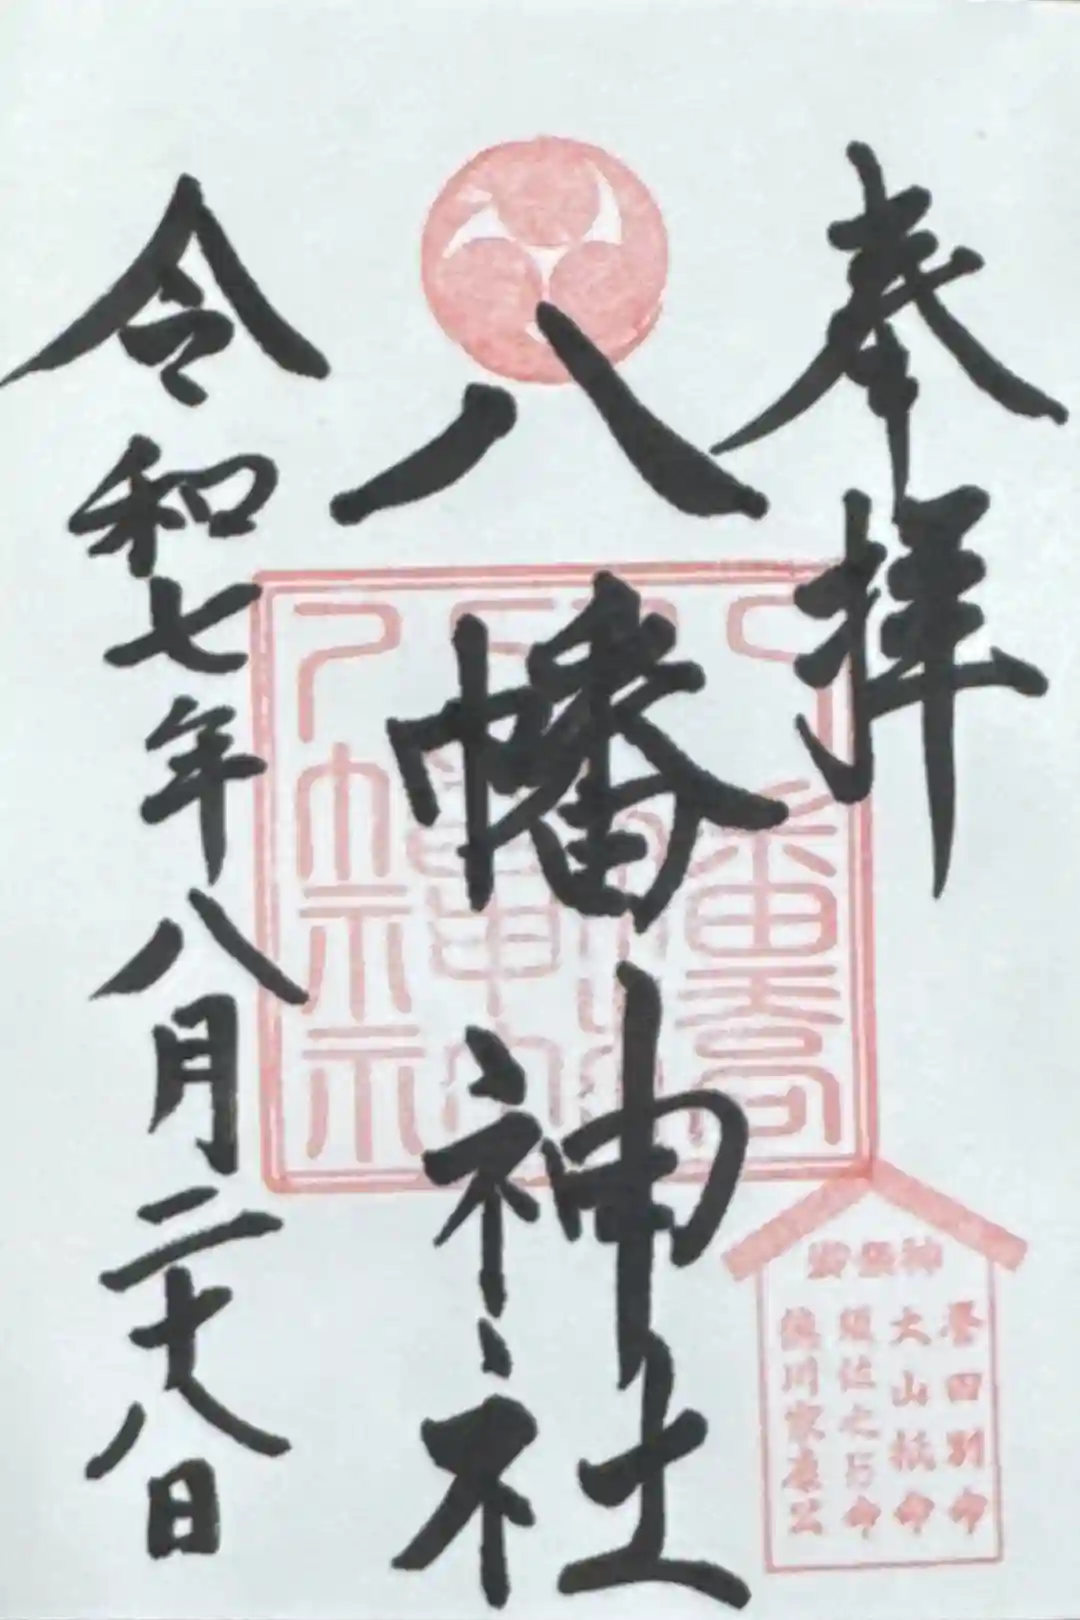 奉拝
八幡神社
令和七年八月二十八日
御祭神
誉田別命
大山祇命
須佐之男命
徳川家康公